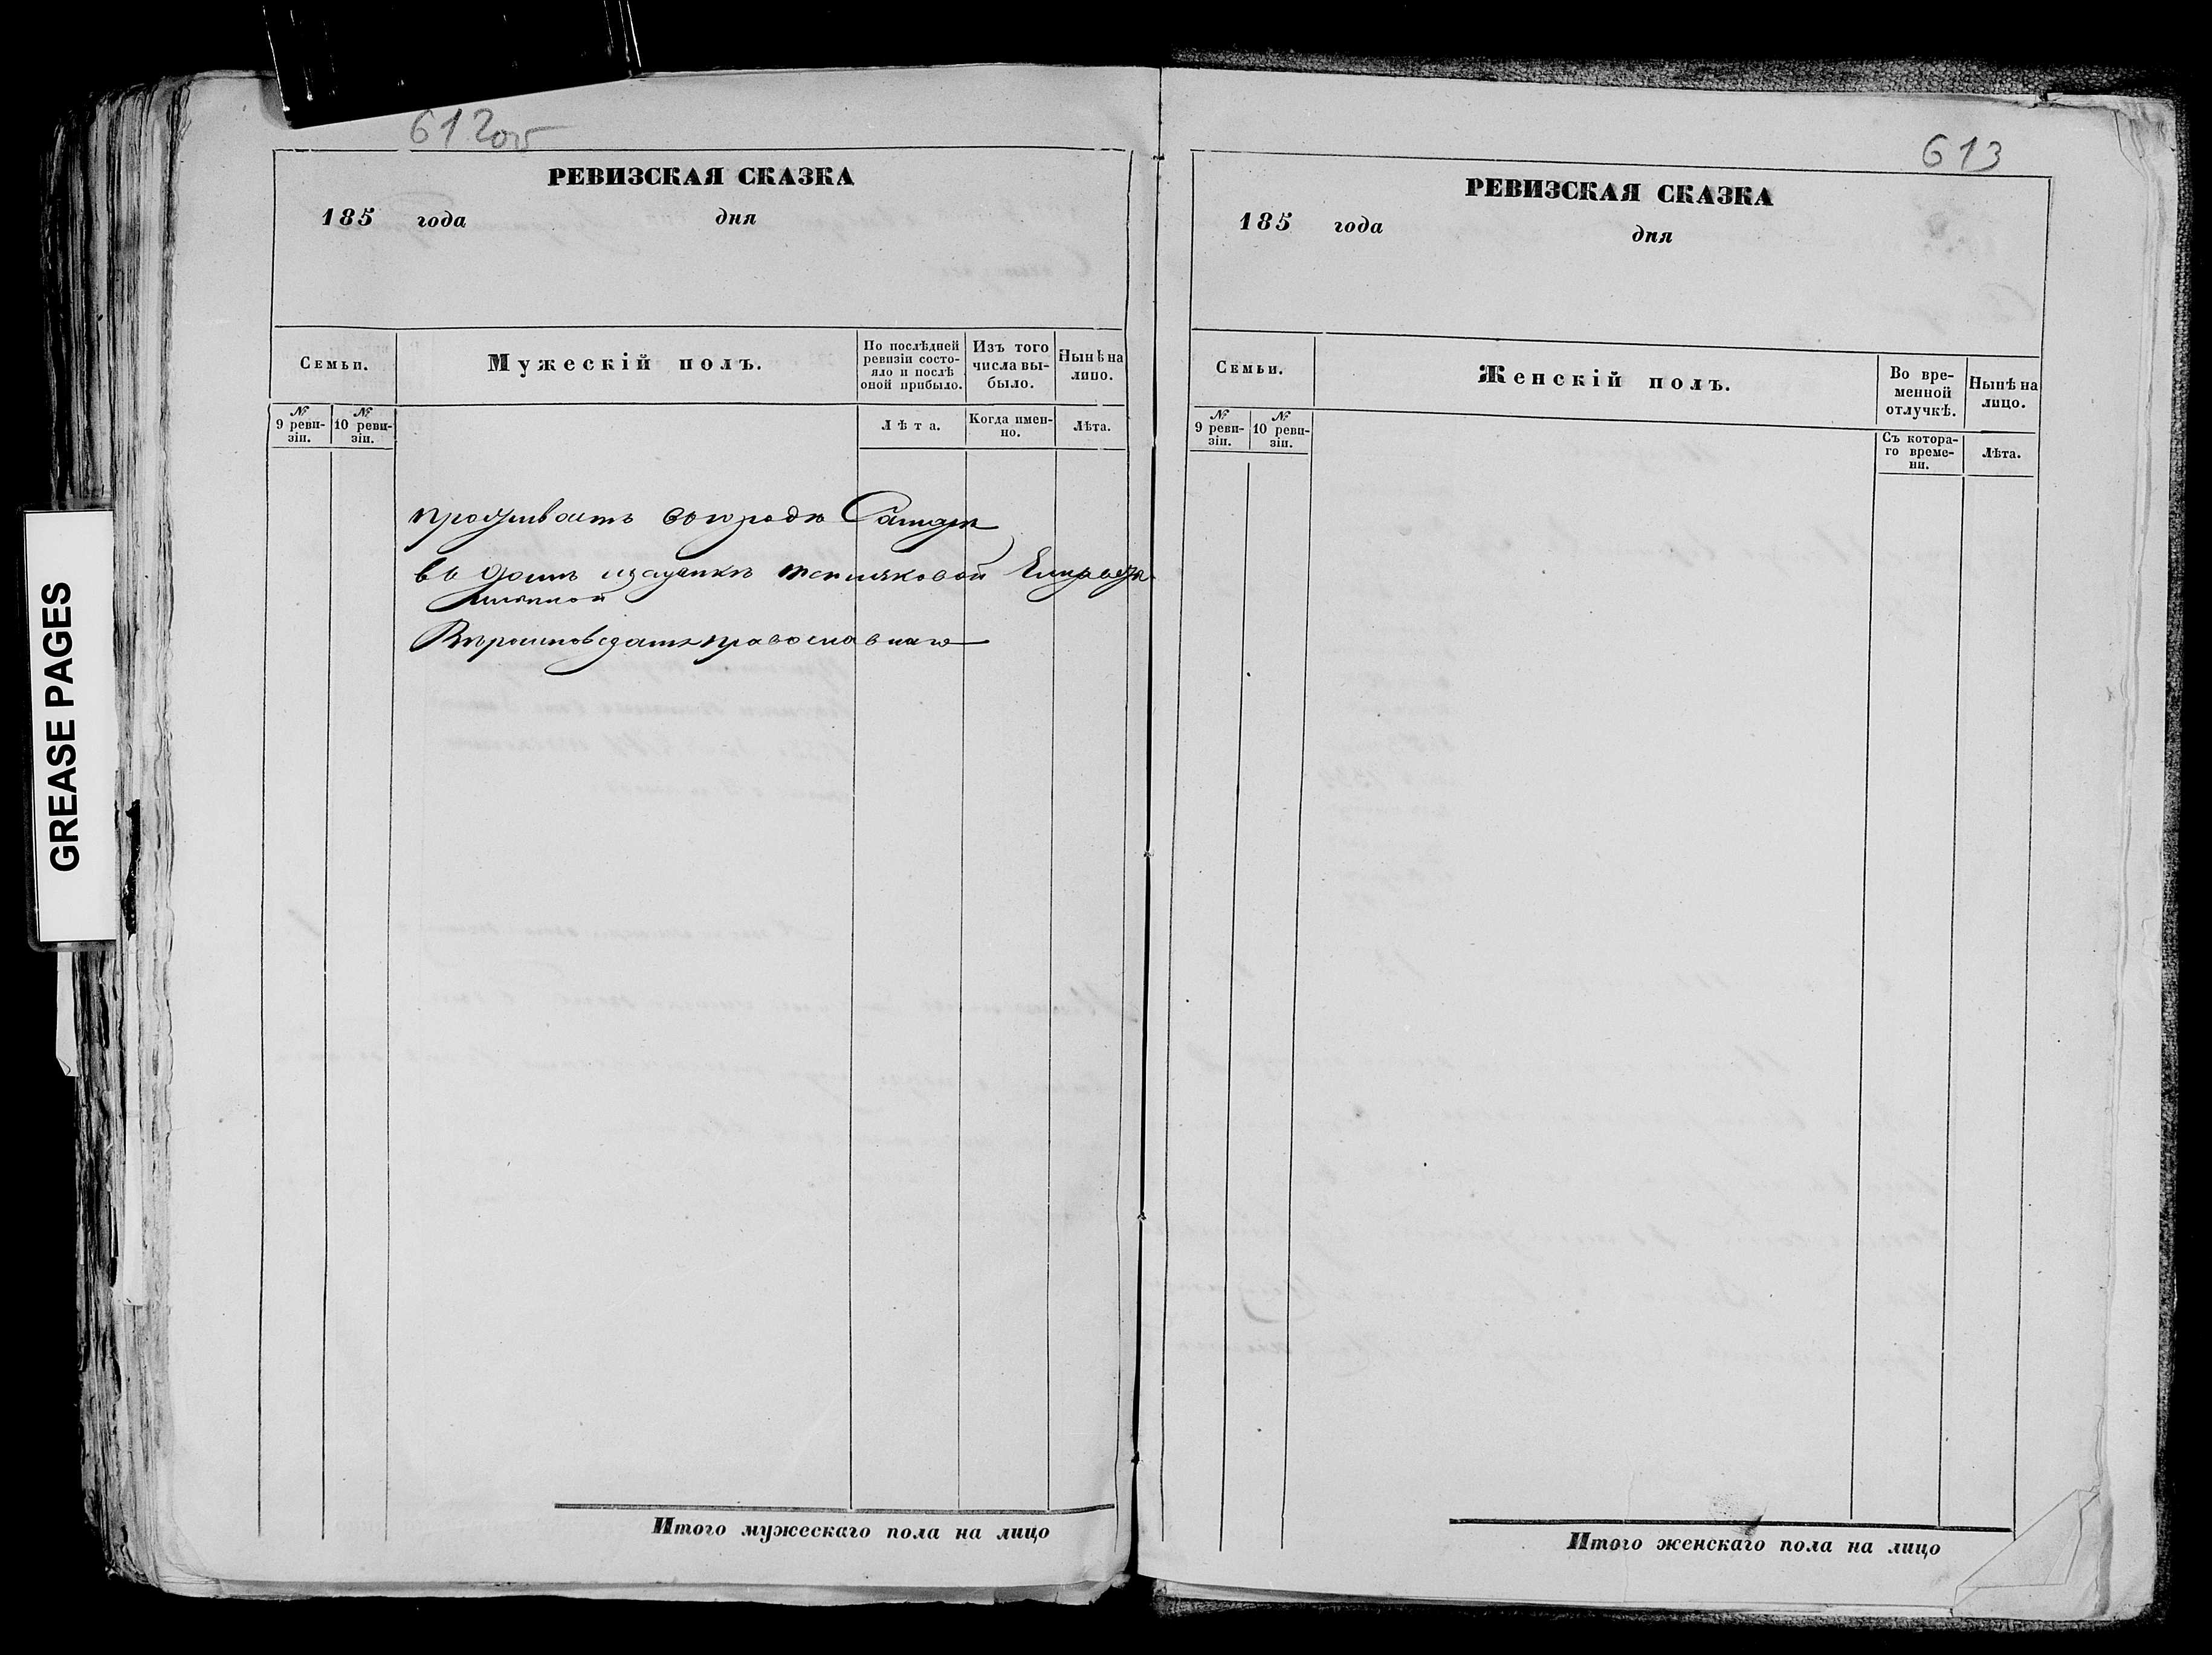 GREASE PAGES
612об
РЕВИЗСКАЯ СКАЗКА
185 года дня
Семьи.
Мужескій полъ.
По послѣдней ревизіи состояло и послѣ оной прибыло.
Изъ того числа выбыло.
Нынѣ на лицо.
№ 9 ревизіи.
№ 10 ревизіи.
Лѣта.
Когда именно.
Лѣта.
проживаетъ въ городѣ
въ домѣ
православнаго
Итого мужескаго пола на лицо
613
РЕВИЗСКАЯ СКАЗКА
185 года дня
Семьи.
Женскій полъ.
Во временной отлучкѣ.
Нынѣ на лицо.
№ 9 ревизіи.
№ 10 ревизіи.
Съ котораго времени.
Лѣта.
Итого женскаго пола на лицо